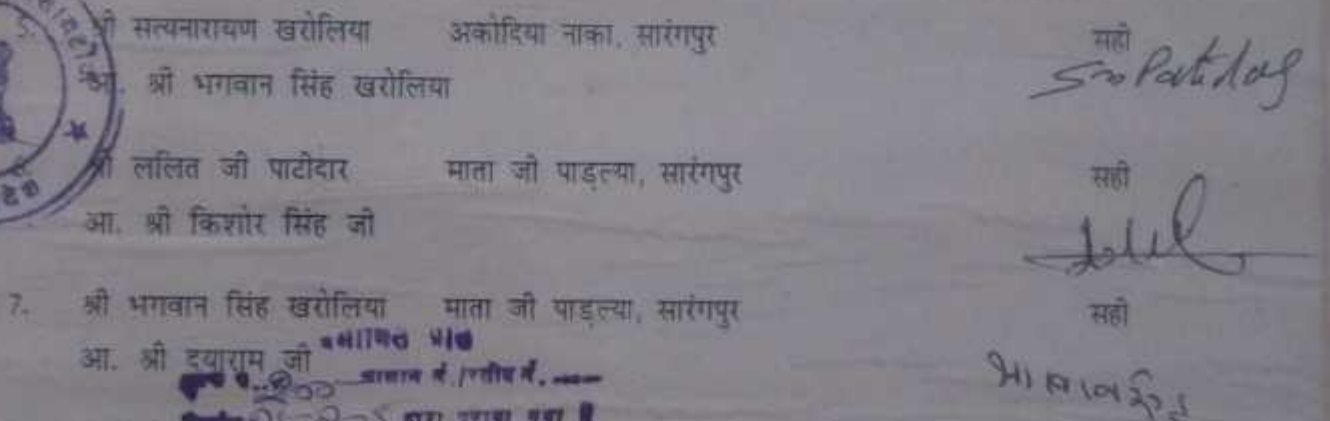 श्री सत्यनारायण खरोलिया अकोदिया नाका, सारंगपुर सही
आ. श्री भगवान सिंह खरोलिया S॰ Patidar
श्री ललित जी पाटीदार माता जी पाड़ल्या, सारंगपुर सही
आ. श्री किशोर सिंह जी
7. श्री भगवान सिंह खरोलिया माता जी पाड़ल्या, सारंगपुर सही
आ. श्री दयाराम जी